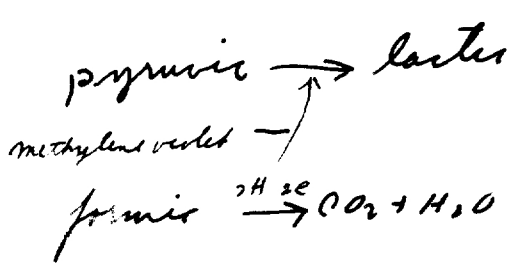 pyruvic → lactic
methylene violet
formic 2H 2e → CO2 + H2O